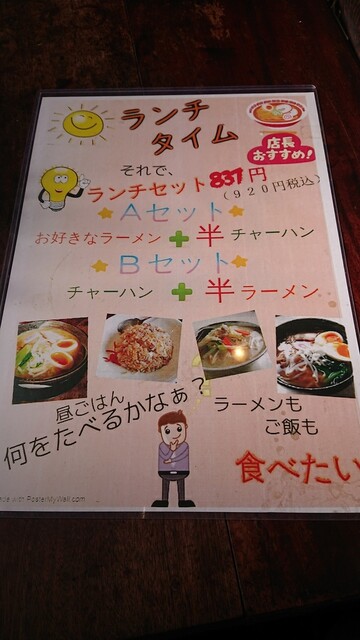 ランチ
タイム
店長
おすすめ!
それで、
ランチセット 837 円
(920円税込)
Aセット
お好きなラーメン + 半 チャーハン
Bセット
チャーハン + 半 ラーメン
昼ごはん
何をたべるかなぁ?
ラーメンも
ご飯も
食べたい
made with PosterMyWall.com